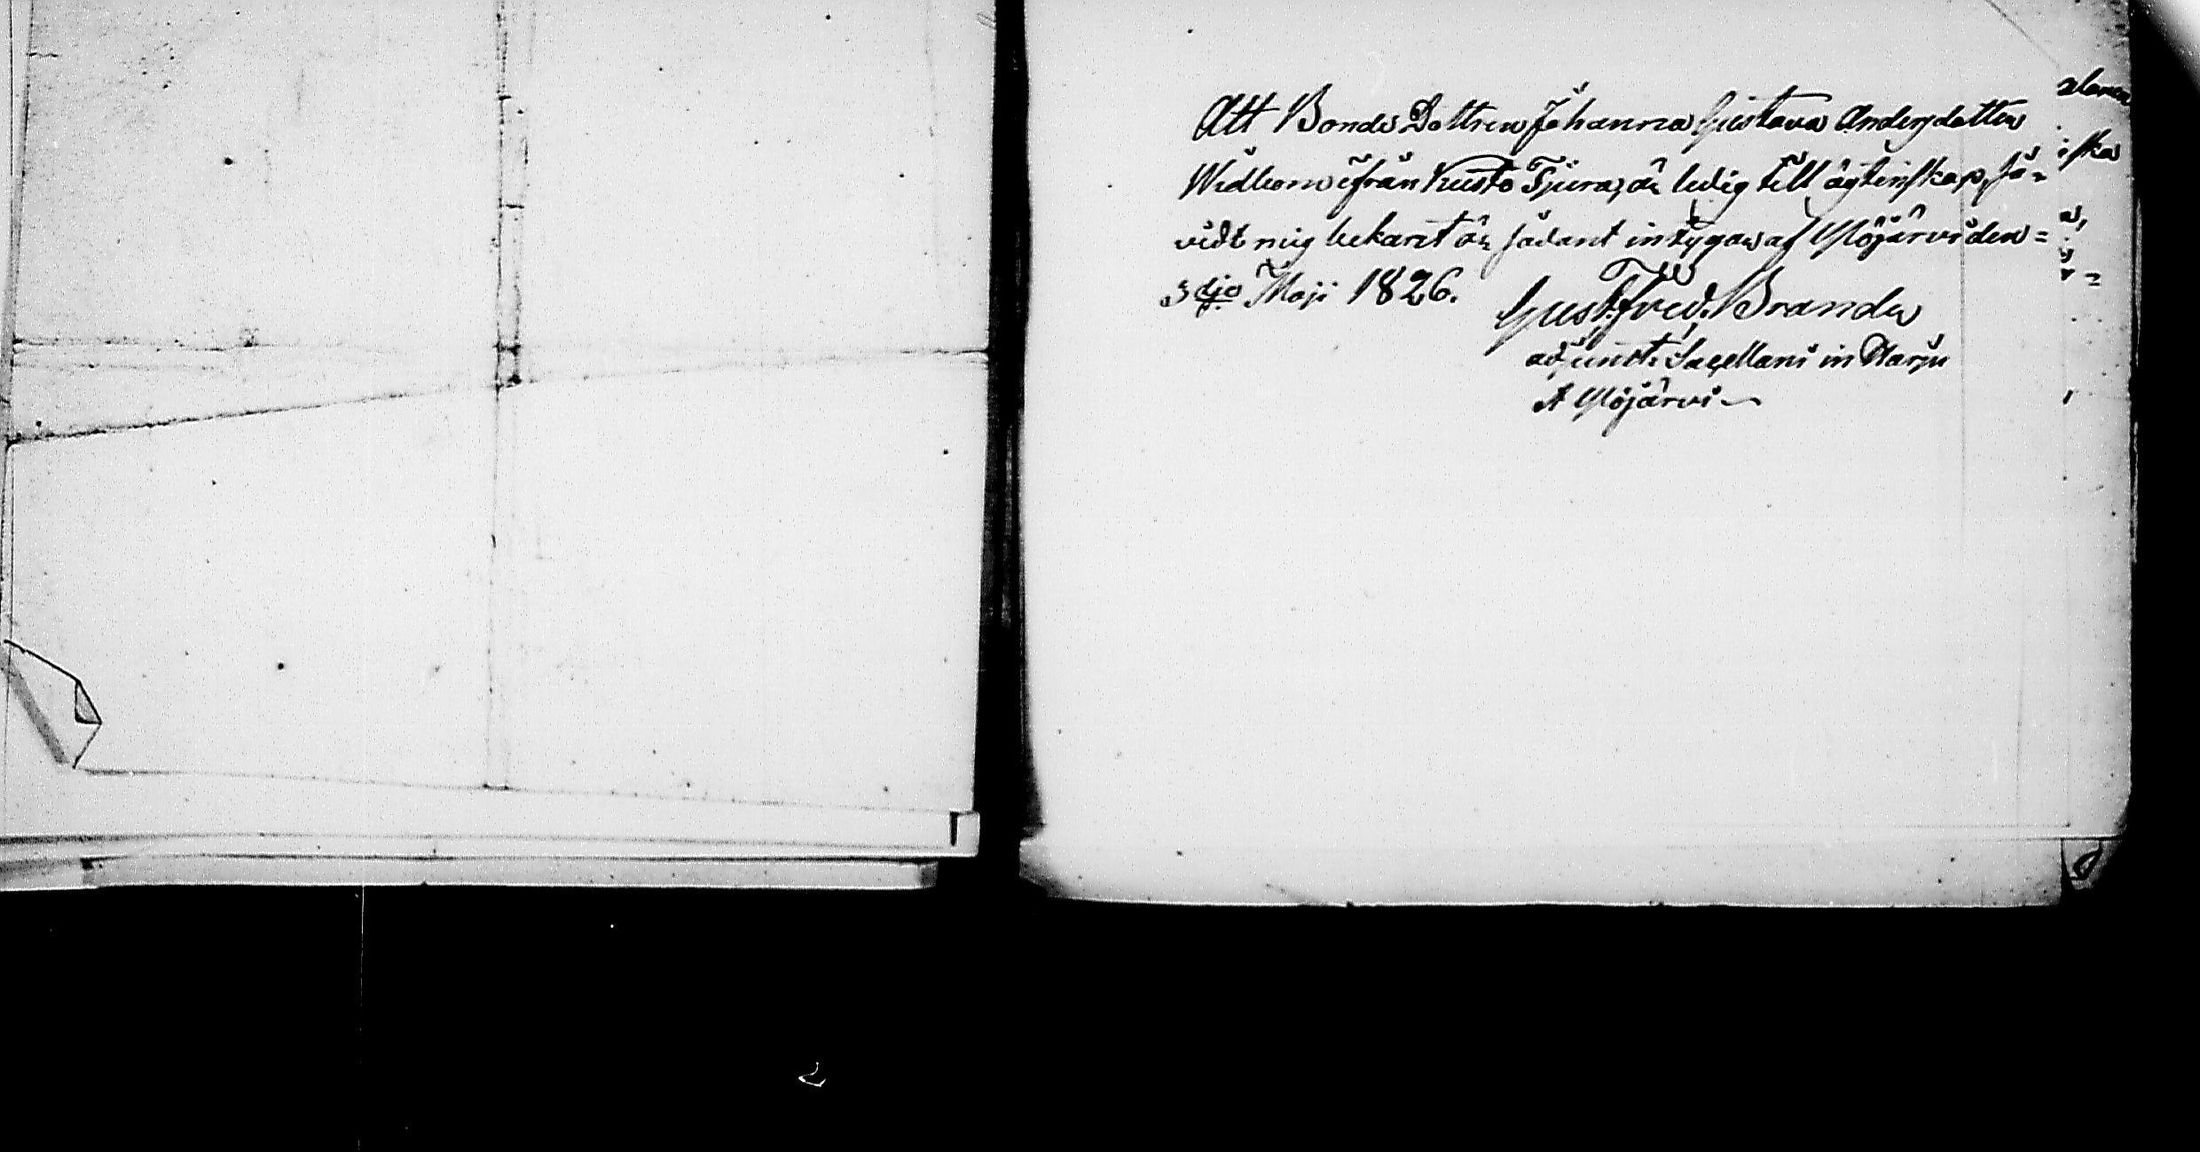 Att Bonde Dottren Johanna Gustava Andersdotter
ifrån Kusto är ledig till ägtenskap, så=
vidt mig bekant är, sådant intygar af Ylöjärvi den=
3dje Maji 1826.
Gust. Fred. Brander
adjunct: Sacellani in Harju
& Ylöjärvi